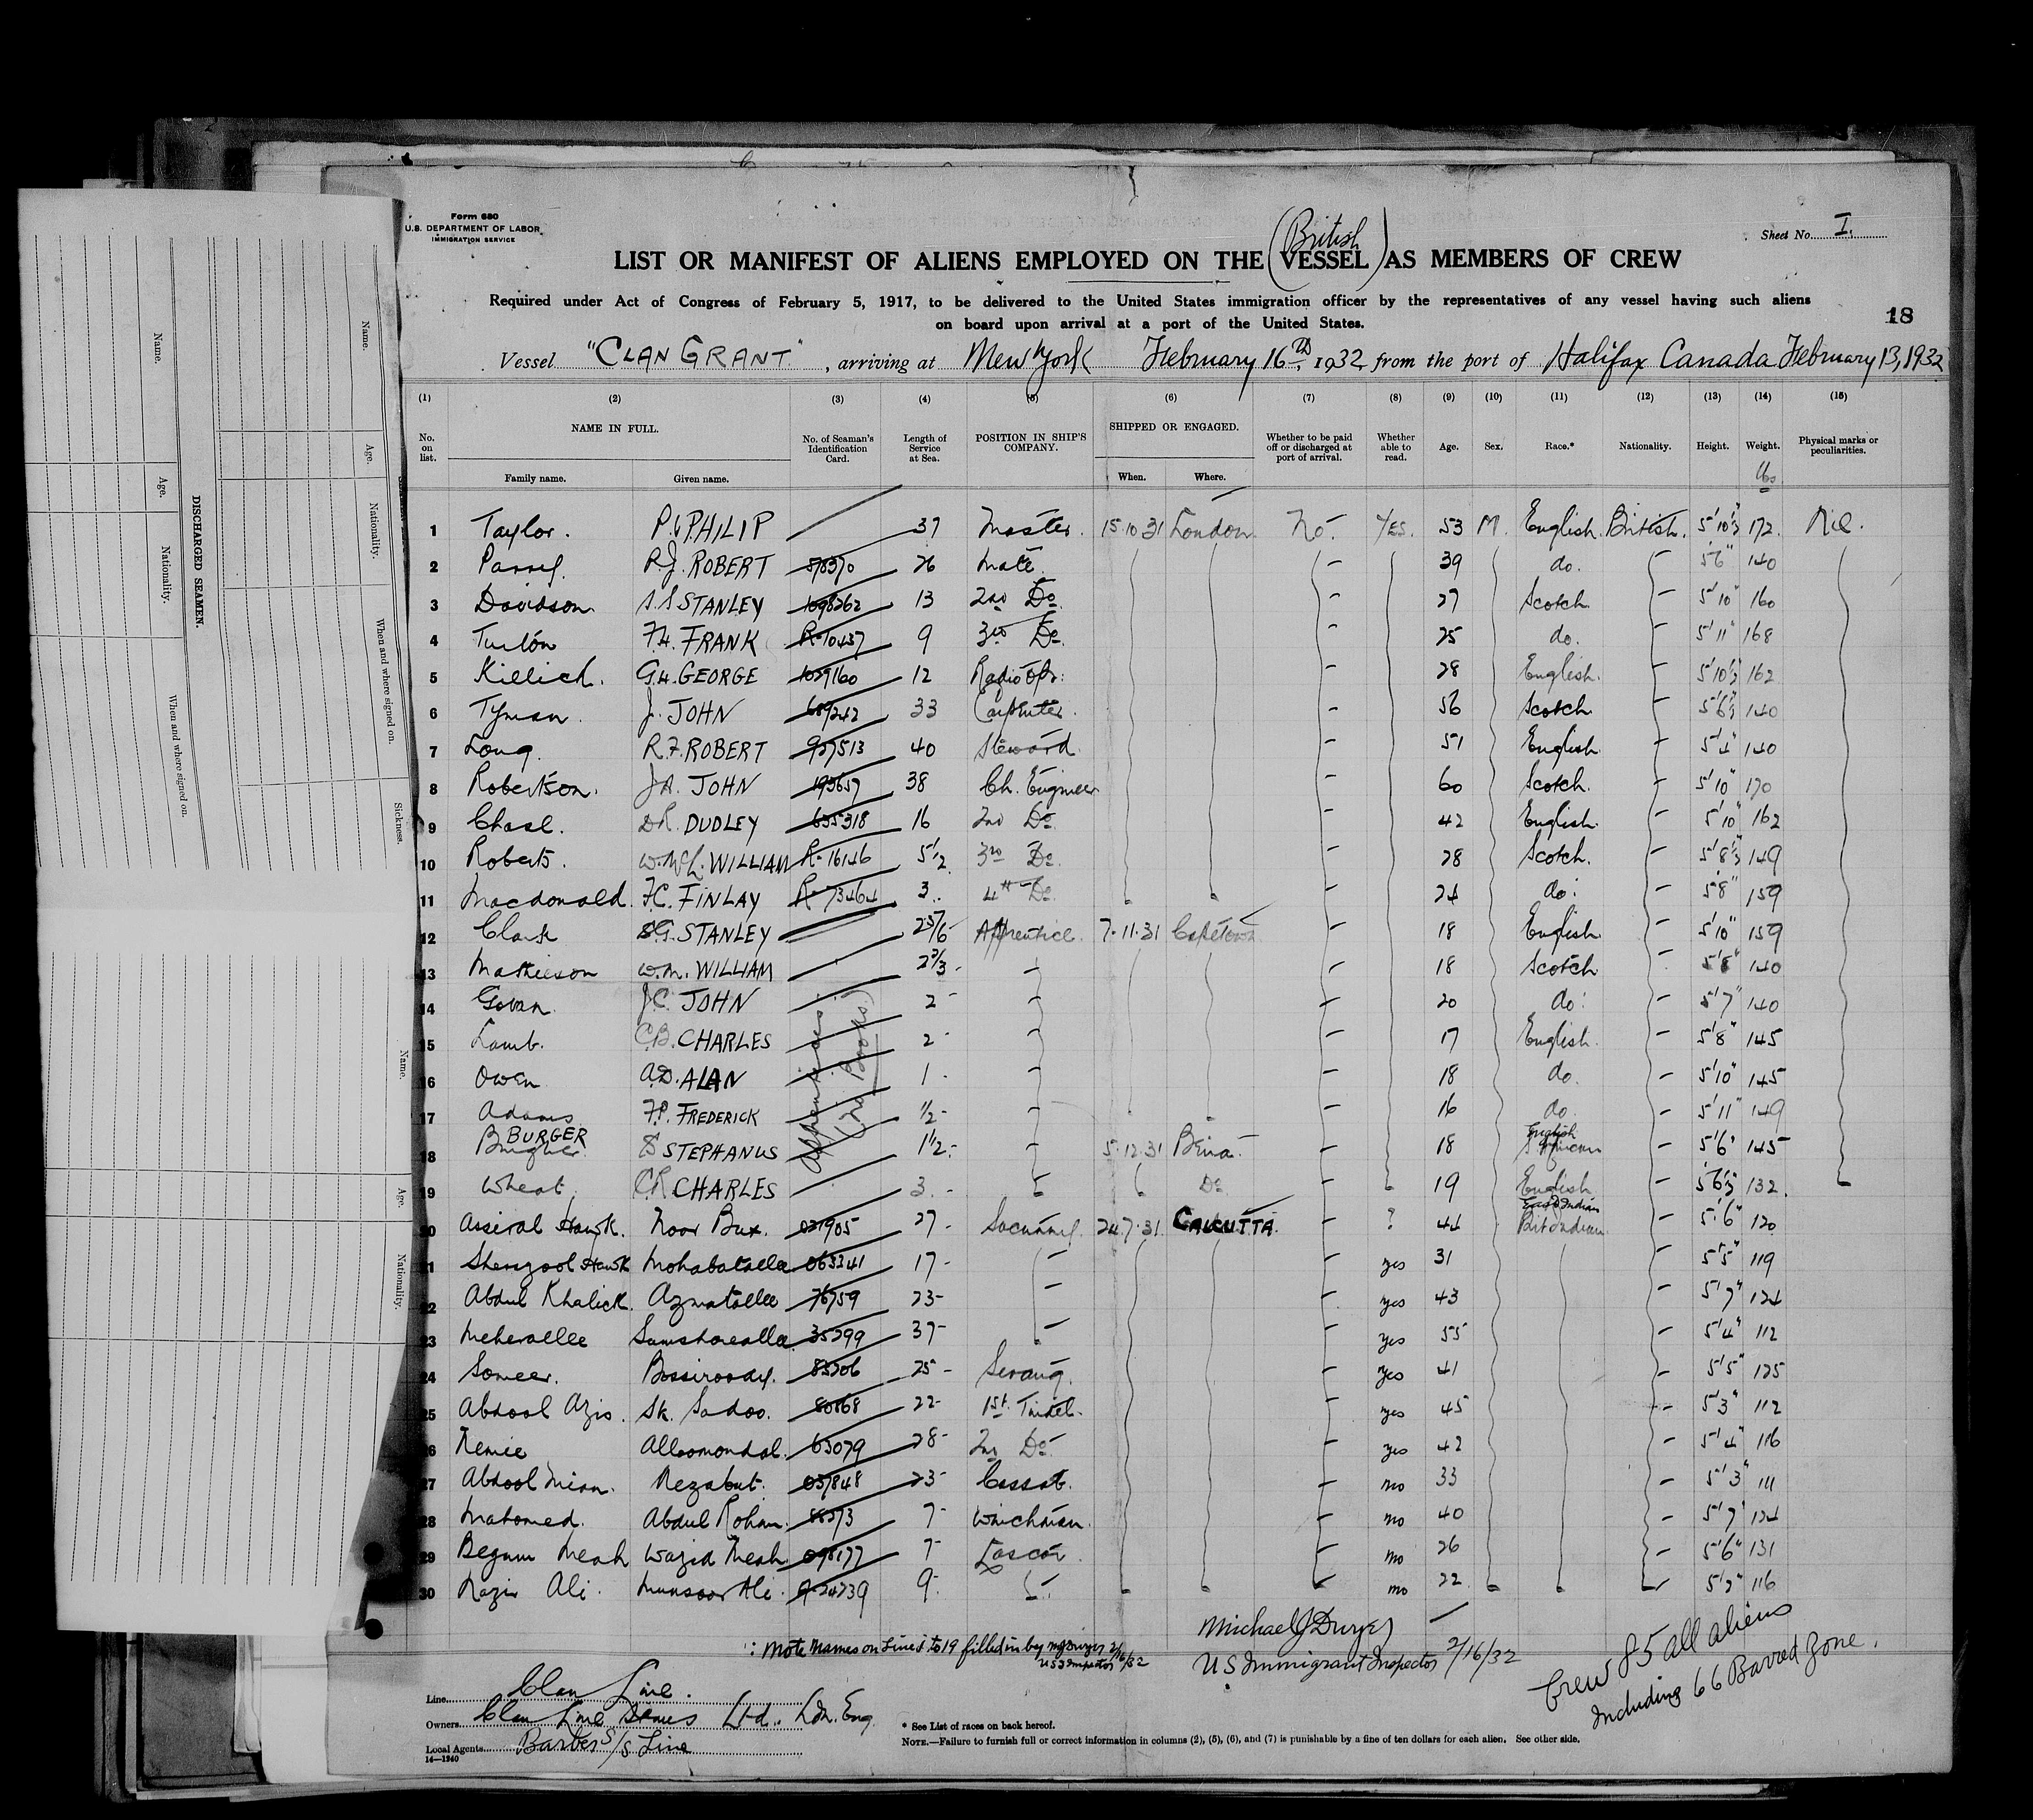 Form 680
U.S. DEPARTMENT OF LABOR
IMMIGRATION SERVICE
Sheet No. I.
(British)
LIST OR MANIFEST OF ALIENS EMPLOYED ON THE VESSEL AS MEMBERS OF CREW
Required under Act of Congress of February 5, 1917, to be delivered to the United States immigration officer by the representatives of any vessel having such aliens
on board upon arrival at a port of the United States.
18
Vessel "CLAN GRANT", arriving at New York February 16th, 1932, from the port of Halifax Canada February 13, 1932
(1) (2) (3) (4) (5) (6) (7) (8) (9) (10) (11) (12) (13) (14) (15)
No. on list. NAME IN FULL. Family name. Given name. No. of Seaman's Identification Card. Length of Service at Sea. POSITION IN SHIP'S COMPANY. SHIPPED OR ENGAGED. When. Where. Whether to be paid off or discharged at port of arrival. Whether able to read. Age. Sex. Race.* Nationality. Height. Weight. lbs Physical marks or peculiarities.
1 Taylor. P. PHILIP 37 Master. 15 10 31 London No. Yes. 53 M. English. British. 5'10½ 172. Nil.
2 R.J. ROBERT 26 Mate. - 39 do. - 5'6" 140
3 Davidson S.S STANLEY 1098262 13 2nd Do. - 27 Scotch - 5'10" 160
4 F.H. FRANK R-70437 9 3rd Do - 25 do. - 5'11" 168
5 Killick. G.H. GEORGE 1029160 12 Radio Opr. - 28 English. - 5'10½ 162
6 J. JOHN 33 Carpenter. - 56 Scotch - 5'6½ 140
7 Long. R.F. ROBERT 927513 40 Steward. - 51 English - 5'4" 140
8 Robertson. J.A. JOHN 193657 38 Ch. Engineer - 60 Scotch. - 5'10" 170
9 Chase. D.R. DUDLEY 635318 16 2nd Do. - 42 English. - 5'10" 162
10 Roberts. W. McL. WILLIAM R-16146 5½ 3rd Do. - 28 Scotch. - 5'8½ 149
11 Macdonald. F.C. FINLAY R-73464 3. 4th Do. - 24 do. - 5'8" 159
12 Clark S.G. STANLEY Apprentice. 7.11.31 Capetown - 18 English. - 5'10" 159
13 Mathieson W.M. WILLIAM 2⅔ - - - 18 Scotch 140
14 Govan J.C. JOHN 2 - - - 20 do. - 5'7" 140
15 Lamb. C.B. CHARLES 2 - - - 17 English. - 5'8" 145
16 Owen A.D. ALAN 1 - - - 18 do. - 5'10" 145
17 Adams F.P. FREDERICK ½ - - - 16 do. - 5'11" 149
Apprentices (no Books)
18 BURGER S STEPHANUS 1½ - - 5.12.31 Beira - 18 English S African - 5'6" 145
19 Wheat C.R. CHARLES 3. - Do - 19 English - 5'6½ 132.
20 Asseral Hawk. Noor Bux. 27 - 24.7.31 CALCUTTA. - ? 44 East Indian - 5'6" 120
21 Hawk Mohabatallee 063341 17 - - - yes 31 - 5'5" 119
22 Abdul Khalick. Azmatallee 76759 23 - - - yes 43 - 5'7" 124
23 Meherallee 35799 37 - - - yes 55 - 5'4" 112
24 Someer. 25 - Serang. - yes 41 - 5'5" 125
25 Abdool Azis. Sk. Sadoo. 80868 22 - 1st Tindel. - yes 45 - 5'3" 112
26 63079 28 - 2nd Do - yes 42 - 5'4" 116
27 Abdool Mian. 037848 23 - Cassab. - no 33 - 5'3" 111
28 Mahomed. Abdul Rohim. 7 - Winchman. - no 40 - 5'7" 124
29 Begum Meah Wazid Meah 098177 7 - Lascar. - no 26 - 5'6" 131
30 Nazir Ali. Munsoor Ali. 9 - - no 22 - 5'2" 116
: Note names on Lines 1 to 19 filled in by MJDwyer 2/16/32
US Inspector
Michael J Dwyer
US Immigrant Inspector 2/16/32
Crew 85 all aliens
Including 66 Barred Zone.
Line Clan Line.
Owners Clan Line Steamers Ltd., Ldn. Eng.
Local Agents Barber S/S Line
14—1940
* See List of races on back hereof.
NOTE.—Failure to furnish full or correct information in columns (2), (5), (6), and (7) is punishable by a fine of ten dollars for each alien. See other side.
DISCHARGED SEAMEN.
Name. Age. Nationality. When and where signed on.
Name. Age. Nationality. When and where signed on. Sickness.
Name. Age. Nationality.